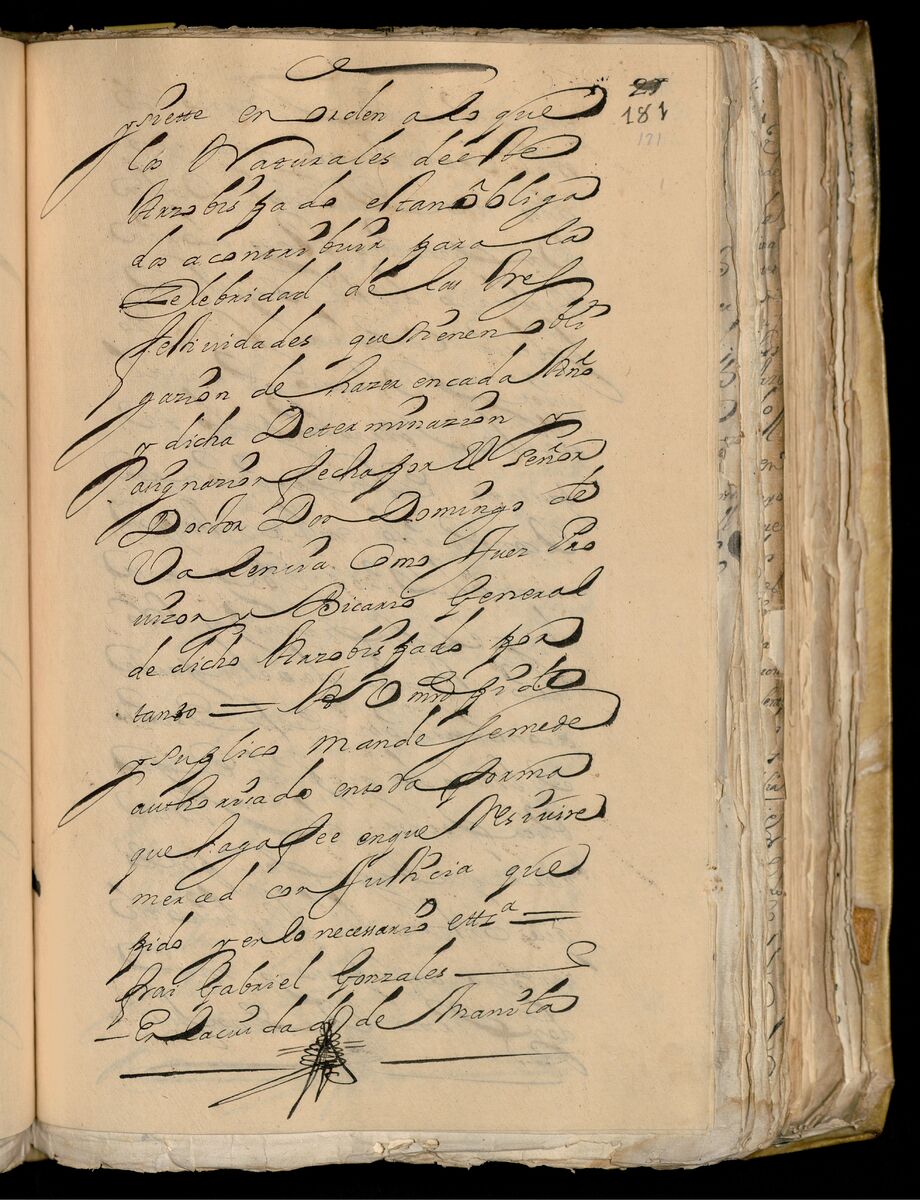 21
181
121
y siette en orden a lo que
los Naturales de este
Arzobispado estan obliga
dos a contribuir para la
Zelebridad de las tres
festividades que tienen obli
gazion de hazer en cada Año
y dicha Determinazion y
asignazion fecha por el señor
Doctor Don Domingo de
Valencia Como Juez Pro
vizor y Bicario General
de dicho Arzobispado por
tanto = A V md pido
y suplico mande se me de
authorizado en toda forma
que haga fee en que Resivire
merced con Justicia que
pido y en lo necessario ettª =
frai Gabriel Gonzales
En la ciudad de Manila